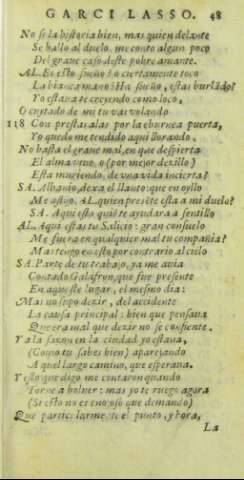 GARCI LASSO. 48
No se la historia bien, mas quien delante
Se hallo al duelo me conto algun poco
Del graue caso deste pobre amante.
AL. Es esto sueño? o ciertamente toco
La blanca mano? Ha sueño, estas burlādo?
Yo estaua te creyendo como loco,
O cuytado de mi tu vas volando
118 Con prestas alas por la eburnea puerta,
Yo quedo me tendido aqui llorando.
No basta el graue mal, en que despierta
El alma viue, o (por mejor dezillo)
Esta muriendo, de vna vida incierta?
SA. Albanio, dexa el llanto: que en oyllo
Me aflijo. AL. quien presēte esta a mi duelo?
SA. Aqui esta quiē te ayudara a sentillo
AL. Aqui estas tu Salicio: gran consuelo
Me fuera en qualquier mal tu compañia?
Mas tengo en esto por contrario al cielo
SA. Parte de tu trabajo, ya me auia
Contado Galafron, que fue presente
En aqueste lugar, el mesmo dia:
Mas no supo dezir, del accidente
La causa principal: bien que pensaua
Que era mal que dezir no se consiente.
Y a la sazon en la ciudad yo estaua,
(Como tu sabes bien) aparejando
A quel largo camino, que esperaua.
Y esto que digo me contaron quando
Torne a boluer: mas yo te ruego agora
(Si esto no es enojoso que demando)
Que particularmente el punto, y hora,
La